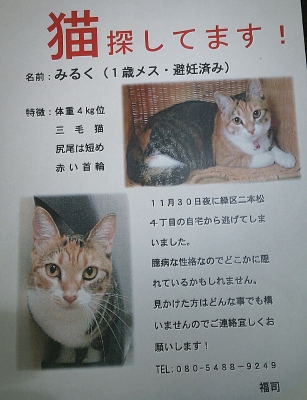 猫探してます！
名前：みるく（１歳メス・避妊済み）
特徴：体重４kg位
三毛猫
尻尾は短め
赤い首輪
１１月３０日夜に緑区二本松
４丁目の自宅から逃げてしま
いました。
臆病な性格なのでどこかに隠
れているかもしれません。
見かけた方はどんな事でも構
いませんのでご連絡宜しくお
願いします！
TEL:０８０-５４８８-９２４９
福司